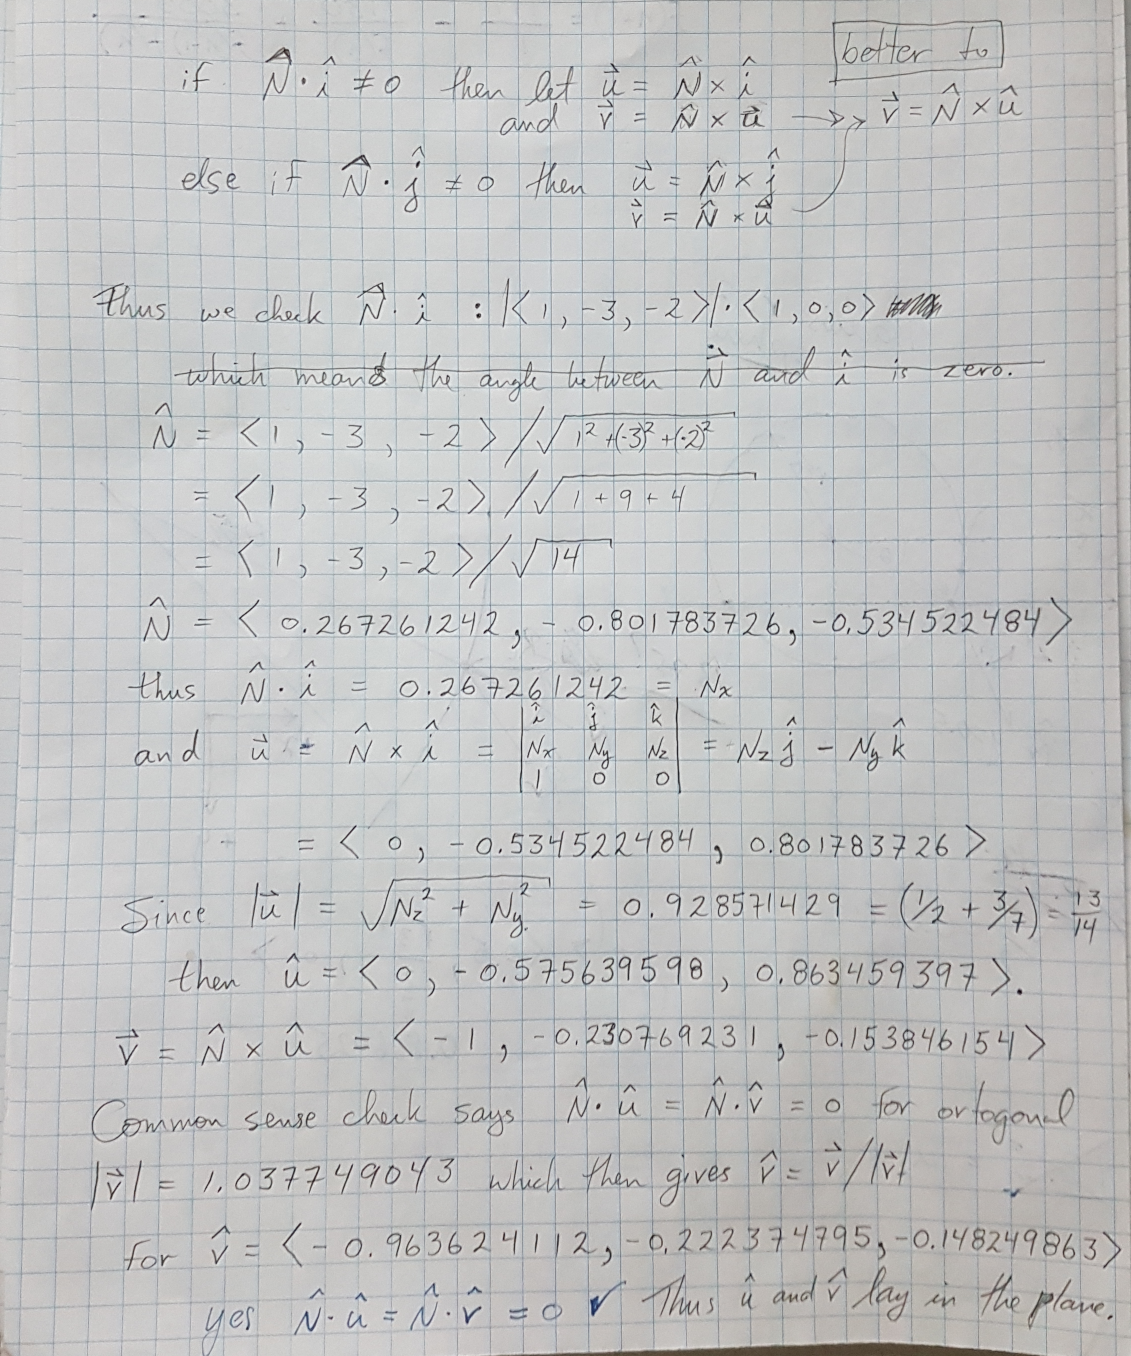 better to
if N̂·î ≠ 0 then let u⃗ = N̂ × î
and v⃗ = N̂ × u⃗ →> v⃗ = N̂ × û
else if N̂·ĵ ≠ 0 then u⃗ = N̂ × ĵ
v⃗ = N̂ × u⃗
Thus we check N̂·î : |<1, -3, -2>|·<1, 0, 0>
which means the angle between N⃗ and î is zero.
N̂ = <1, -3, -2>/√(1²+(-3)²+(-2)²)
= <1, -3, -2>/√(1+9+4)
= <1, -3, -2>/√14
N̂ = <0.267261242, -0.801783726, -0.534522484>
thus N̂·î = 0.267261242 = Nx
and u⃗ = N̂ × î = |î ĵ k̂| = Nz ĵ - Ny k̂
|Nx Ny Nz|
|1 0 0|
= <0, -0.534522484, 0.801783726>
Since |u⃗| = √(Nz² + Ny²) = 0.928571429 = (1/2 + 3/7) = 13/14
then û = <0, -0.575639598, 0.863459397>.
v⃗ = N̂ × û = <-1, -0.230769231, -0.153846154>
Common sense check says N̂·û = N̂·v̂ = 0 for ortogonal
|v⃗| = 1.037749043 which then gives v̂ = v⃗/|v⃗|
for v̂ = <-0.963624112, -0.222374795, -0.148249863>
yes N̂·û = N̂·v̂ = 0 ✓ Thus û and v̂ lay in the plane.